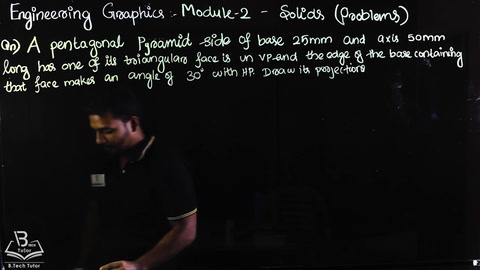 Engineering Graphics :- Module-2 - Solids (Problems)
Qn) A pentagonal Pyramid side of base 25mm and axis 50mm
long has one of its triangular faces is in VP and the edge of the base containing
that face makes an angle of 30° with HP. Draw its projections
B.Tech
Tutor
B.Tech Tutor